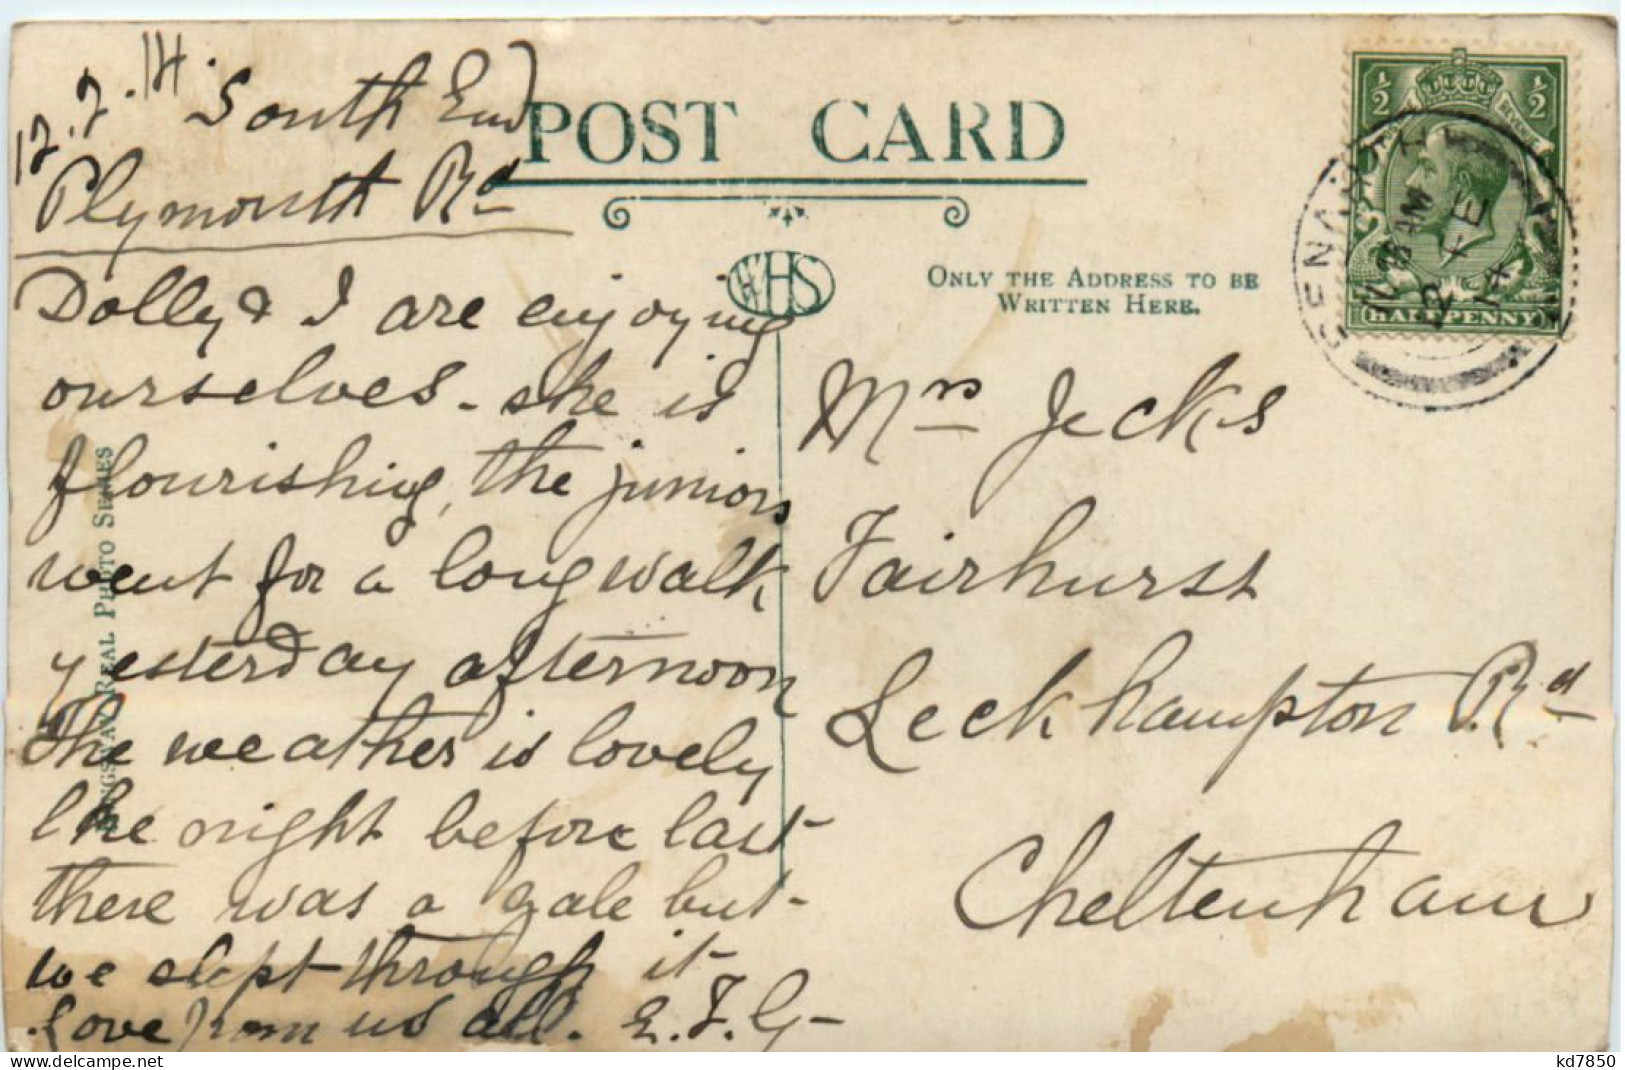 12.2.14.
South End
Plymouth Rd
POST CARD
WHS
ONLY THE ADDRESS TO BE
WRITTEN HERE.
Dolly & I are enjoying
ourselves - she is
flourishing, the juniors
went for a long walk
yesterday afternoon
The weather is lovely
the night before last
there was a gale but
we slept through it
Love from us all. E.F.G
KINGSWAY REAL PHOTO SERIES
Mrs Jecks
Fairhurst
Leckhampton Rd
Cheltenham
½ ½
HALFPENNY
PENARTH
12 FE
14
https://www.delcampe.net
kd7850